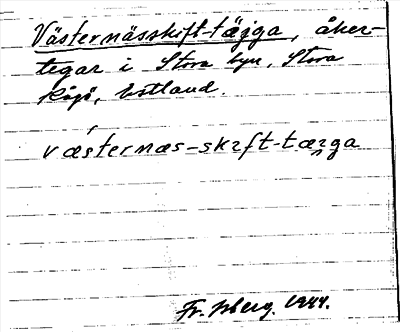 Västernässkift-täjga, åker-
tegar i Stora byn, Stora
Rågö, Estland.
væsternæs-skɪft-tæɪga
Fr. Isberg. 1944.